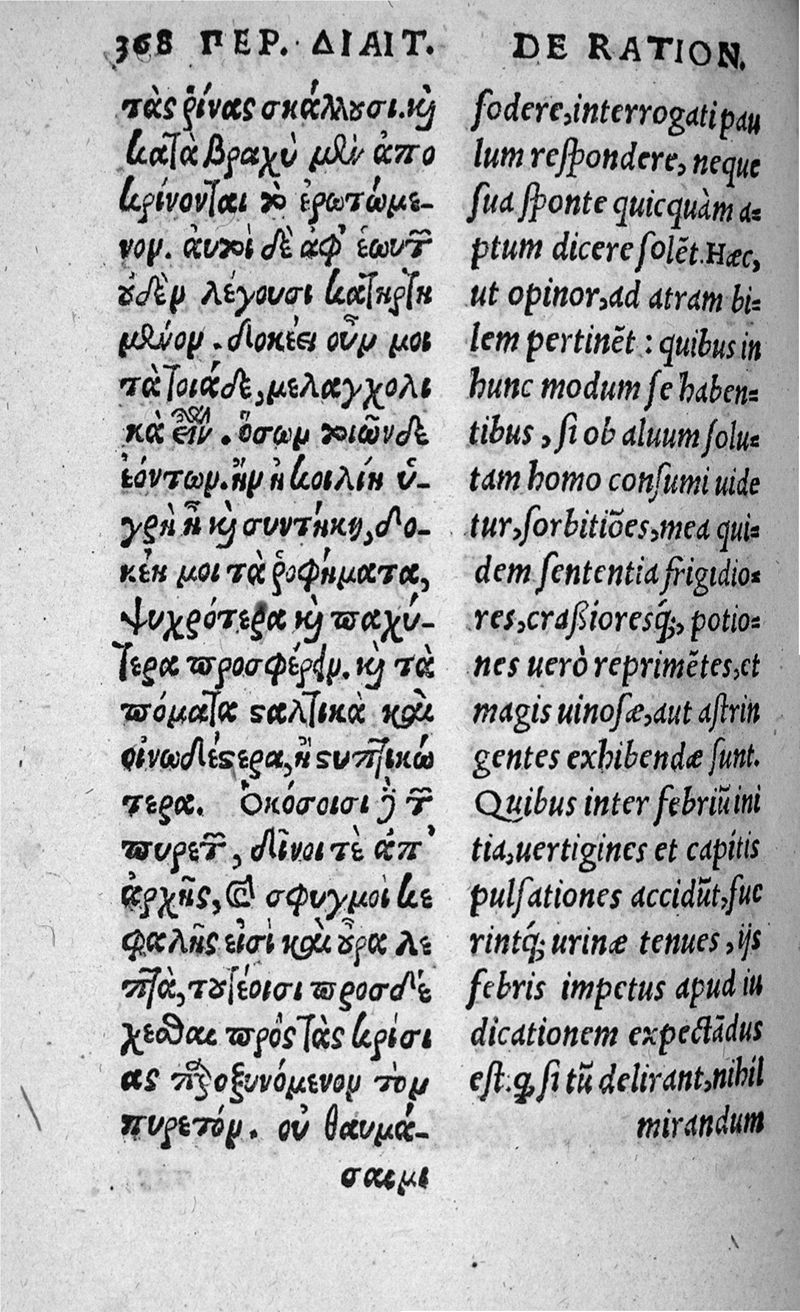 368 ΠΕΡ. ΔΙΑΙΤ.
τὰς ῥίνας σκάλλουσι. καὶ
κατὰ βραχὺ μὲν ἀπο
κρίνονται τὸ ἐρωτώμε-
νον. αὐτοὶ δὲ ἀφ' ἑωυτῶν
οὐδὲν λέγουσι κατηρτη
μένον. δοκέει οὖν μοι
τὰ τοιάδε, μελαγχολι
κὰ εἶναι. ὅσων τοιῶνδε
ἐόντων. ἢν ἡ κοιλίη ὑ-
γρὴ ᾖ καὶ συντήκῃ, δο-
κέει μοι τὰ ῥοφήματα,
ψυχρότερα καὶ παχύ-
τερα προσφέρειν. καὶ τὰ
πόματα σταλτικὰ καὶ
οἰνωδέστερα, ἢ στυπτικώ
τερα. Ὁκόσοισι δὲ τῶν
πυρετῶν, δῖνοι τὲ ἀπ'
ἀρχῆς, καὶ σφυγμοὶ κε
φαλῆς εἰσὶ καὶ οὖρα λε
πτὰ, τουτέοισι προσδέ
χεσθαι πρὸς τὰς κρίσι
ας παροξυνόμενον τὸν
πυρετόν. οὐ θαυμά-
σαιμι
DE RATION.
fodere, interrogati pau
lum respondere, neque
sua sponte quicquàm a-
ptum dicere solẽt. Hæc,
ut opinor, ad atram bi-
lem pertinẽt : quibus in
hunc modum se haben-
tibus, si ob aluum solu-
tam homo consumi uide
tur, sorbitiões, mea qui-
dem sententia frigidio-
res, craßioresq́;, potio-
nes uerò reprimẽtes, et
magis uinosæ, aut astrin
gentes exhibendæ sunt.
Quibus inter febriũ ini
tia, uertigines et capitis
pulsationes accidũt, fue
rintq́; urinæ tenues, ijs
febris impetus apud iu
dicationem expectãdus
est. q̃ si tũ delirant, nihil
mirandum